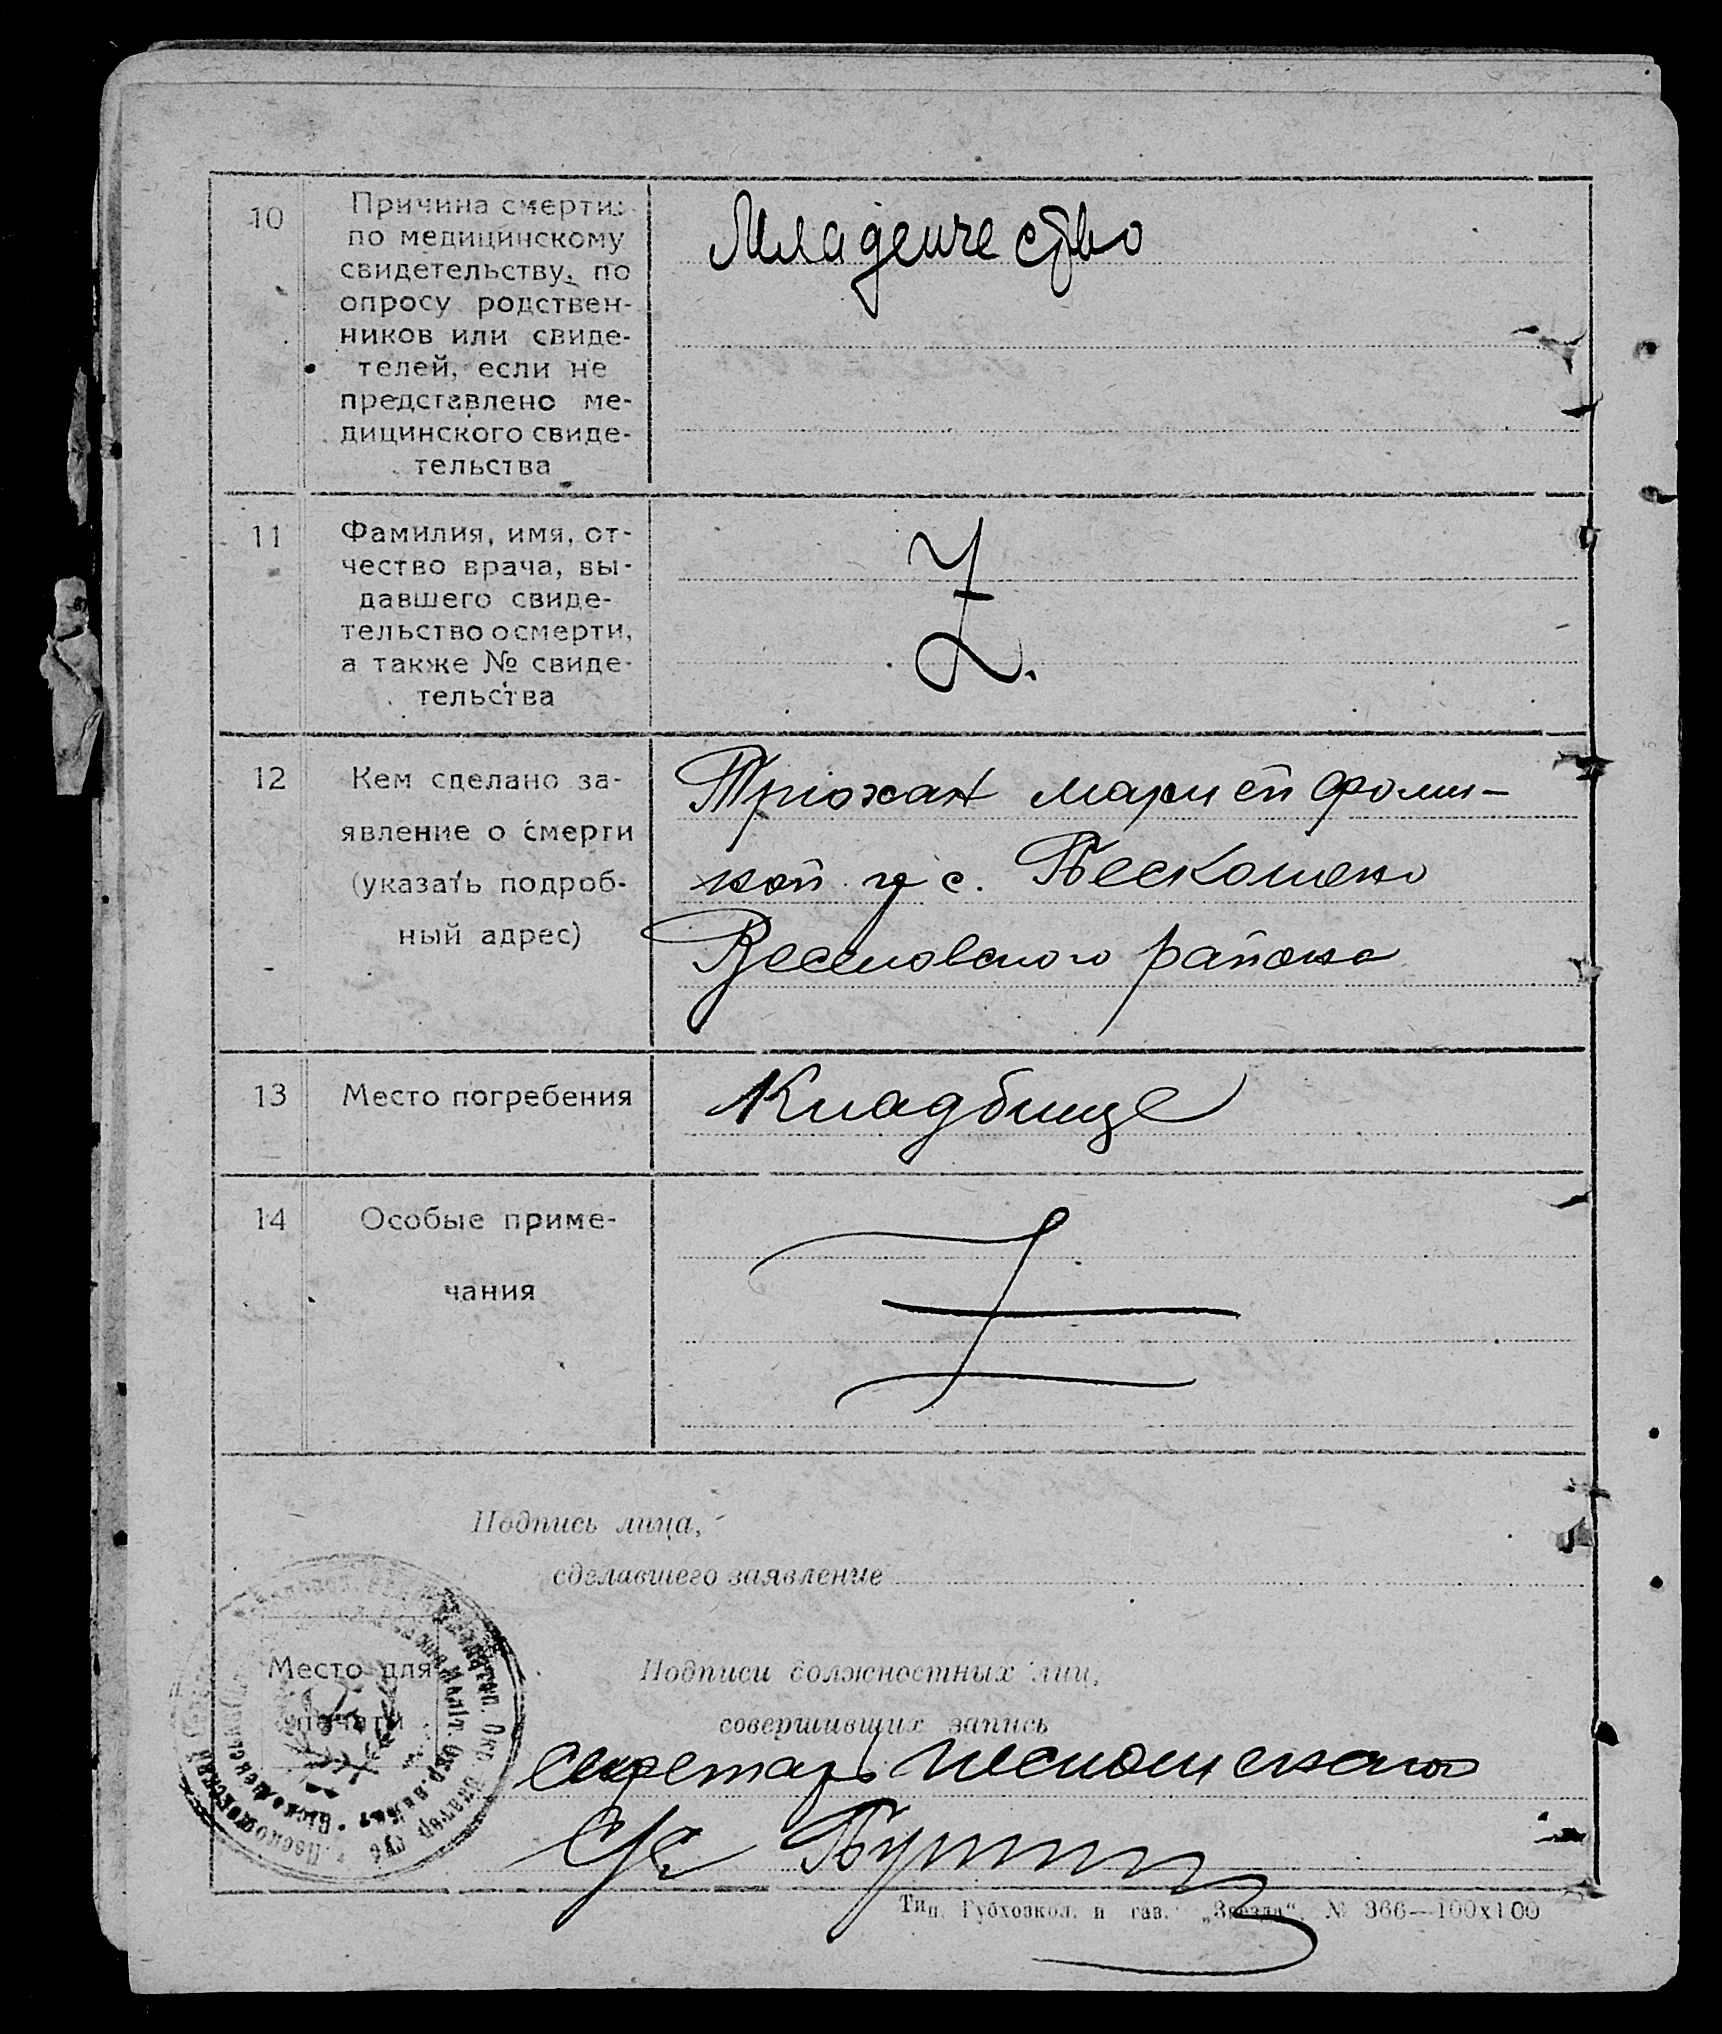 10
Причина смерти:
по медицинскому
свидетельству, по
опросу родствен-
ников или свиде-
телей, если не
представлено ме-
дицинского свиде-
тельства
Младенчество
11
Фамилия, имя, от-
чество врача, вы-
давшего свиде-
тельство о смерти,
а также № свиде-
тельства
Z.
12
Кем сделано за-
явление о смерти
(указать подроб-
ный адрес)
Трюхан Марией Фоми-
ной с.
Веселовского района
13
Место погребения
Кладбище
14
Особые приме-
чания
Z
Подпись лица,
сделавшего заявление
Место для
печати
Подписи должностных лиц,
совершивших запись
секретарь
С/с
Тип. Губхозкол. и газ. „Звезда“. № 366—100х100